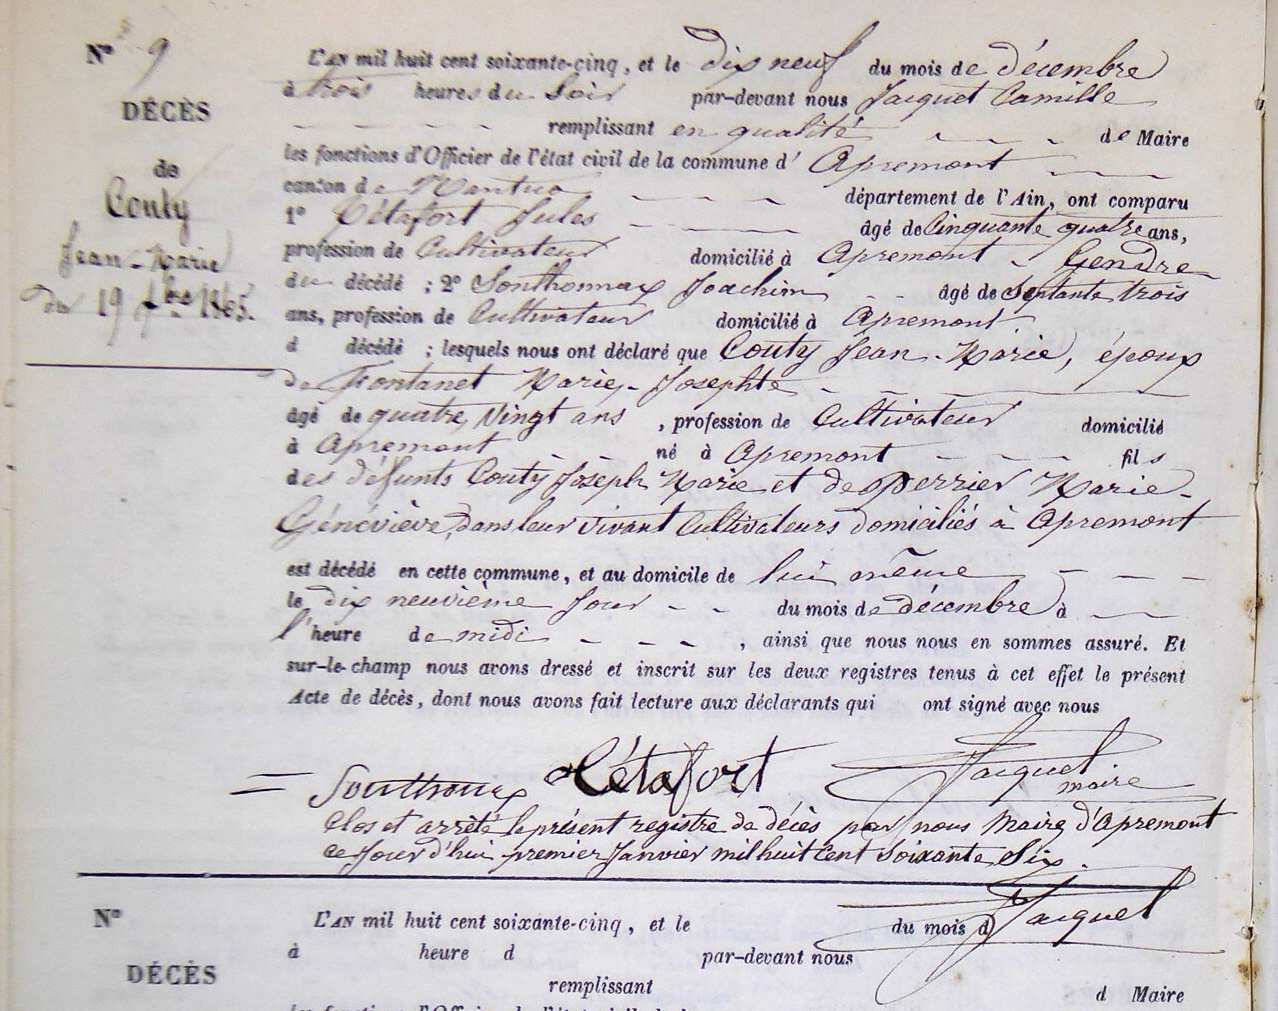 N° 9
DÉCÈS
de
Couty
Jean-Marie
du 19 Xbre 1865.
L'AN mil huit cent soixante-cinq, et le dix neuf du mois de décembre
à trois heures du Soir par-devant nous Jacquet Camille
remplissant en qualité de Maire
les fonctions d'Officier de l'état civil de la commune d' Apremont
canton de Nantua département de l'Ain, ont comparu
1° Létafort Jules âgé de Cinquante quatre ans,
profession de Cultivateur domicilié à Apremont - Gendre
du décédé ; 2° Sonthonnax Joachim âgé de Septante trois
ans, profession de Cultivateur domicilié à Apremont
d décédé ; lesquels nous ont déclaré que Couty Jean-Marie, époux
de Fontanet Marie-Josephte
âgé de quatre Vingt ans , profession de Cultivateur domicilié
à Apremont né à Apremont fils
des défunts Couty Joseph Marie et de Perrier Marie-
Généviève, dans leur vivant Cultivateurs domiciliés à Apremont
est décédé en cette commune, et au domicile de lui même
le dix neuvième Jour du mois de décembre à
l'heure de midi , ainsi que nous nous en sommes assuré. Et
sur-le-champ nous avons dressé et inscrit sur les deux registres tenus à cet effet le présent
Acte de décès, dont nous avons fait lecture aux déclarants qui ont signé avec nous
Sonthonax Létafort Jacquet
maire
Clos et arrêté le présent registre de décès par nous Maire d'Apremont
ce Jour d'hui premier Janvier mil huit Cent Soixante Six.
Jacquet
N° L'AN mil huit cent soixante-cinq, et le du mois d
à heure d par-devant nous
DÉCÈS
remplissant d Maire
les fonctions d'Officier de l'état civil de la